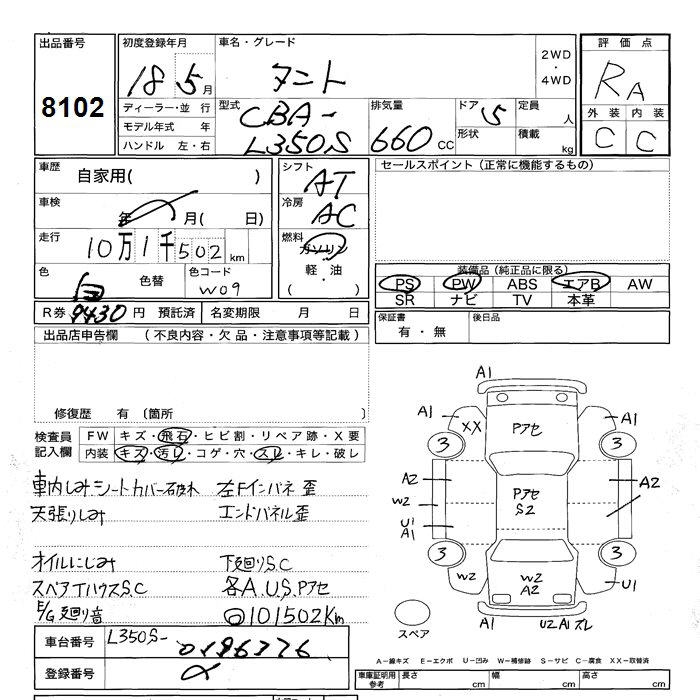 出品番号
8102
初度登録年月
18 5月
車名・グレード
タント
2WD
・
4WD
評価点
RA
外装 内装
C C
ディーラー・並行
モデル年式 年
ハンドル 左・右
型式
CBA-
L350S
排気量
660 CC
ドア 5
形状
定員 人
積載 kg
車歴
自家用( )
車検
年 月( 日)
走行
10万1千502 km
色
白
色替
色コード
W09
シフト
AT
冷房
AC
燃料
ガソリン
軽・油
( )
セールスポイント(正常に機能するもの)
装備品(純正品に限る)
PS PW ABS エアB AW
SR ナビ TV 本革
R券 9430 円 預託済 名変期限 月 日
保証書
有・無
後日品
出品店申告欄 (不良内容・欠品・注意事項等記載)
修復歴 有〔箇所 〕
検査員
記入欄
FW キズ・飛石・ヒビ割・リペア跡・X要
内装 キズ・汚レ・コゲ・穴・スレ・キレ・破レ
車内しみ シートカバー 左Fインパネ歪
天張りしみ エンドパネル歪
オイルにじみ 下廻りS.C
スペアタイハウスS.C 各A.U.Sアセ
E/G廻り音 101502Km
A1
A1
XX
Pアセ
A1
3
3
A2
W2
U1
A1
Pアセ
S2
A2
3
3
W2
W2
A2
U1
A1
U2A1ズレ
スペア
車台番号 L350S-0196376
登録番号
A-線キズ E-エクボ U-凹み W-補修跡 S-サビ C-腐食 XX-取替済
車庫証明用
参考
長さ cm
幅 cm
高さ cm